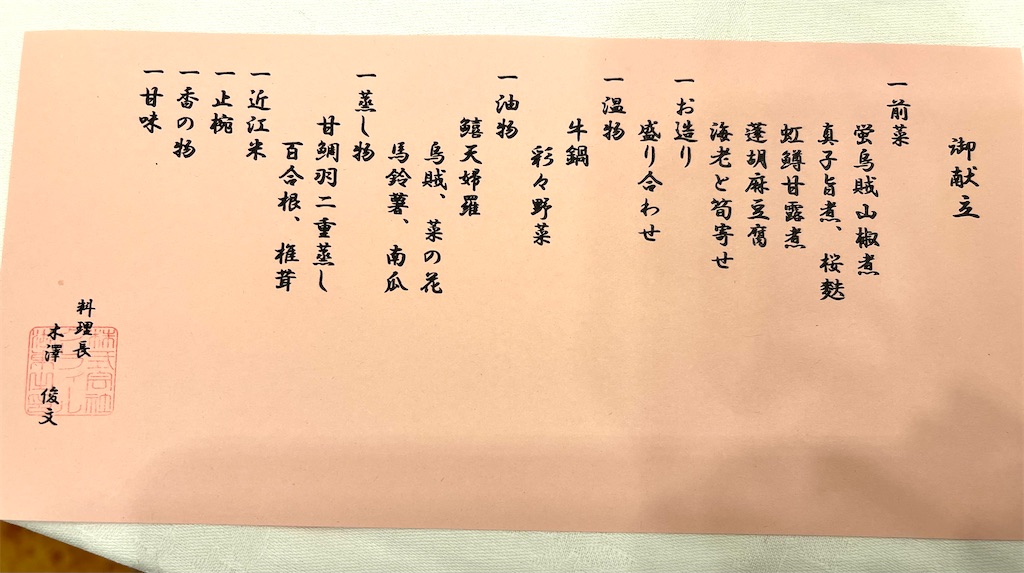 御献立
一前菜
螢烏賊山椒煮
真子旨煮、桜麩
虹鱒甘露煮
蓬胡麻豆腐
海老と筍寄せ
一お造り
盛り合わせ
一温物
牛鍋
彩々野菜
一油物
鱚天婦羅
烏賊、菜の花
馬鈴薯、南瓜
一蒸し物
甘鯛羽二重蒸し
百合根、椎茸
一近江米
一止椀
一香の物
一甘味
料理長
木澤 俊文
株式会社